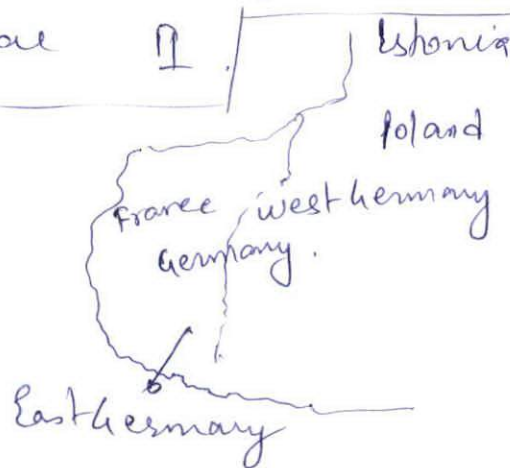 II
Estonia
Poland
France West Germany
Germany.
East Germany